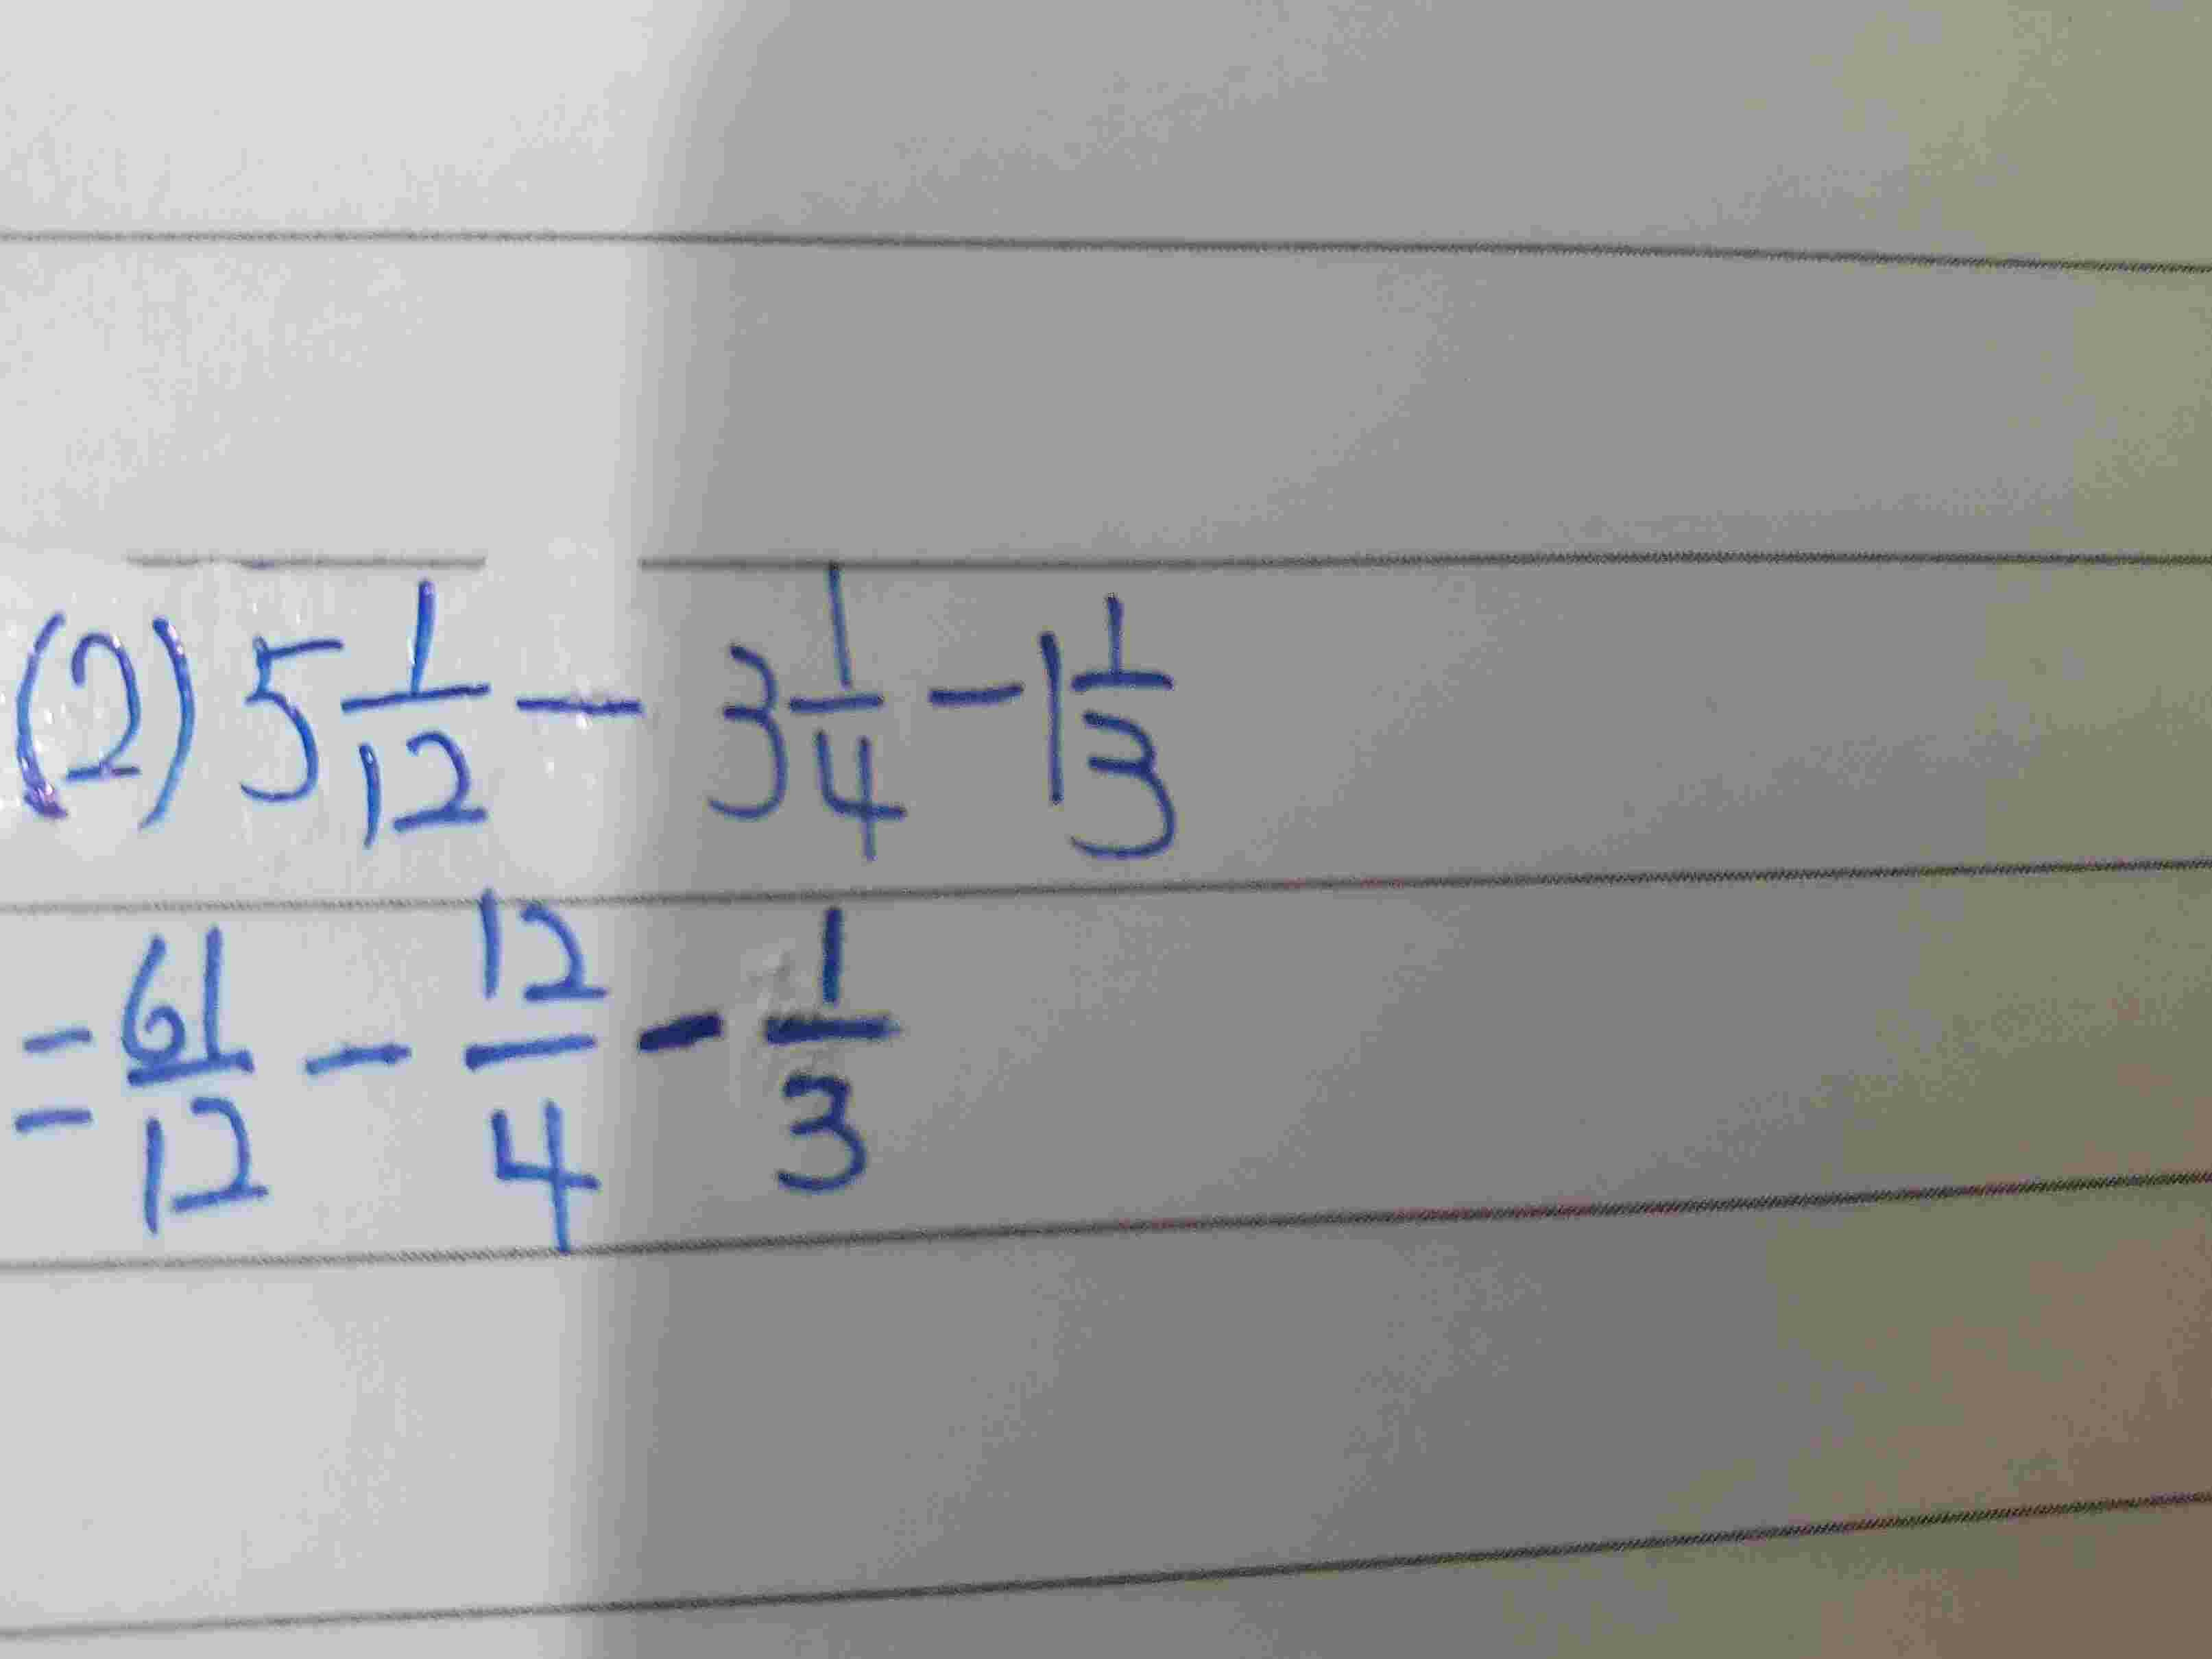 (2) 5 1/12 - 3 1/4 - 1 1/3
= 61/12 - 12/4 - 1/3